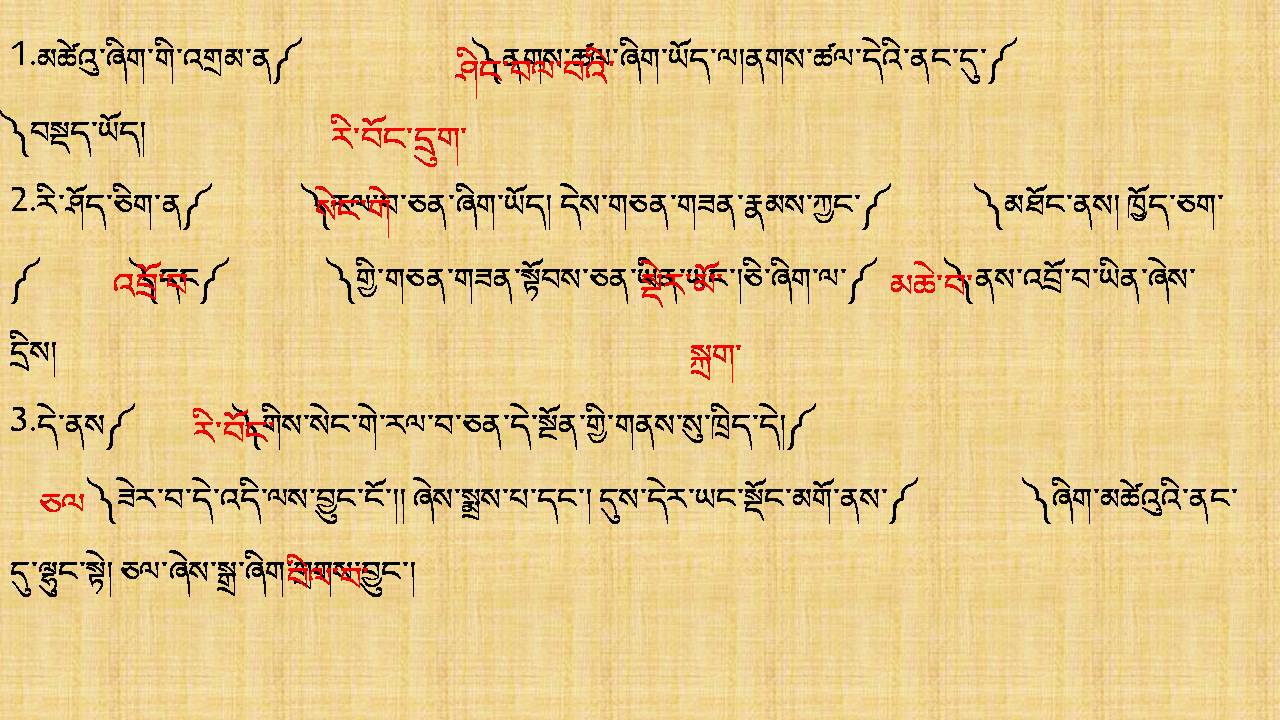 1.མཚེའུ་ཞིག་གི་འགྲམ་ན༼ ཤིང་བལ་བའི་ ༽ནགས་ཚལ་ཞིག་ཡོད་ལ།ནགས་ཚལ་དེའི་ནང་དུ་༼
༽བསྡད་ཡོད། རི་བོང་དྲུག་
2.རི་ཤོད་ཅིག་ན༼ སེང་གེ་ ༽རལ་བ་ཅན་ཞིག་ཡོད། དེས་གཅན་གཟན་རྣམས་ཀྱང་༼ ༽མཐོང་ནས། ཁྱོད་ཅག་
༼ འབྲོ་བ་ ༽དང༼ ༽གྱི་གཅན་གཟན་སྟོབས་ཅན་ཡིན་ཡང་།ཅི་ཞིག་ལ་༼ སྡེར་མོ་ མཆེ་བ་ ༽ནས་འབྲོ་བ་ཡིན་ཞེས་
དྲིས། སྐྲག་
3.དེ་ནས༼ རི་བོང་ ༽གིས་སེང་གེ་རལ་བ་ཅན་དེ་སྔོན་གྱི་གནས་སུ་ཁྲིད་དེ།༼
ཅལ ༽ཟེར་བ་དེ་འདི་ལས་བྱུང་ངོ་།། ཞེས་སྨྲས་པ་དང་། དུས་དེར་ཡང་སྡོང་མགོ་ནས་༼ ༽ཞིག་མཚེའུའི་ནང་
དུ་ལྷུང་སྟེ། ཅལ་ཞེས་སྒྲ་ཞིག་གྲགས་བྱུང་།